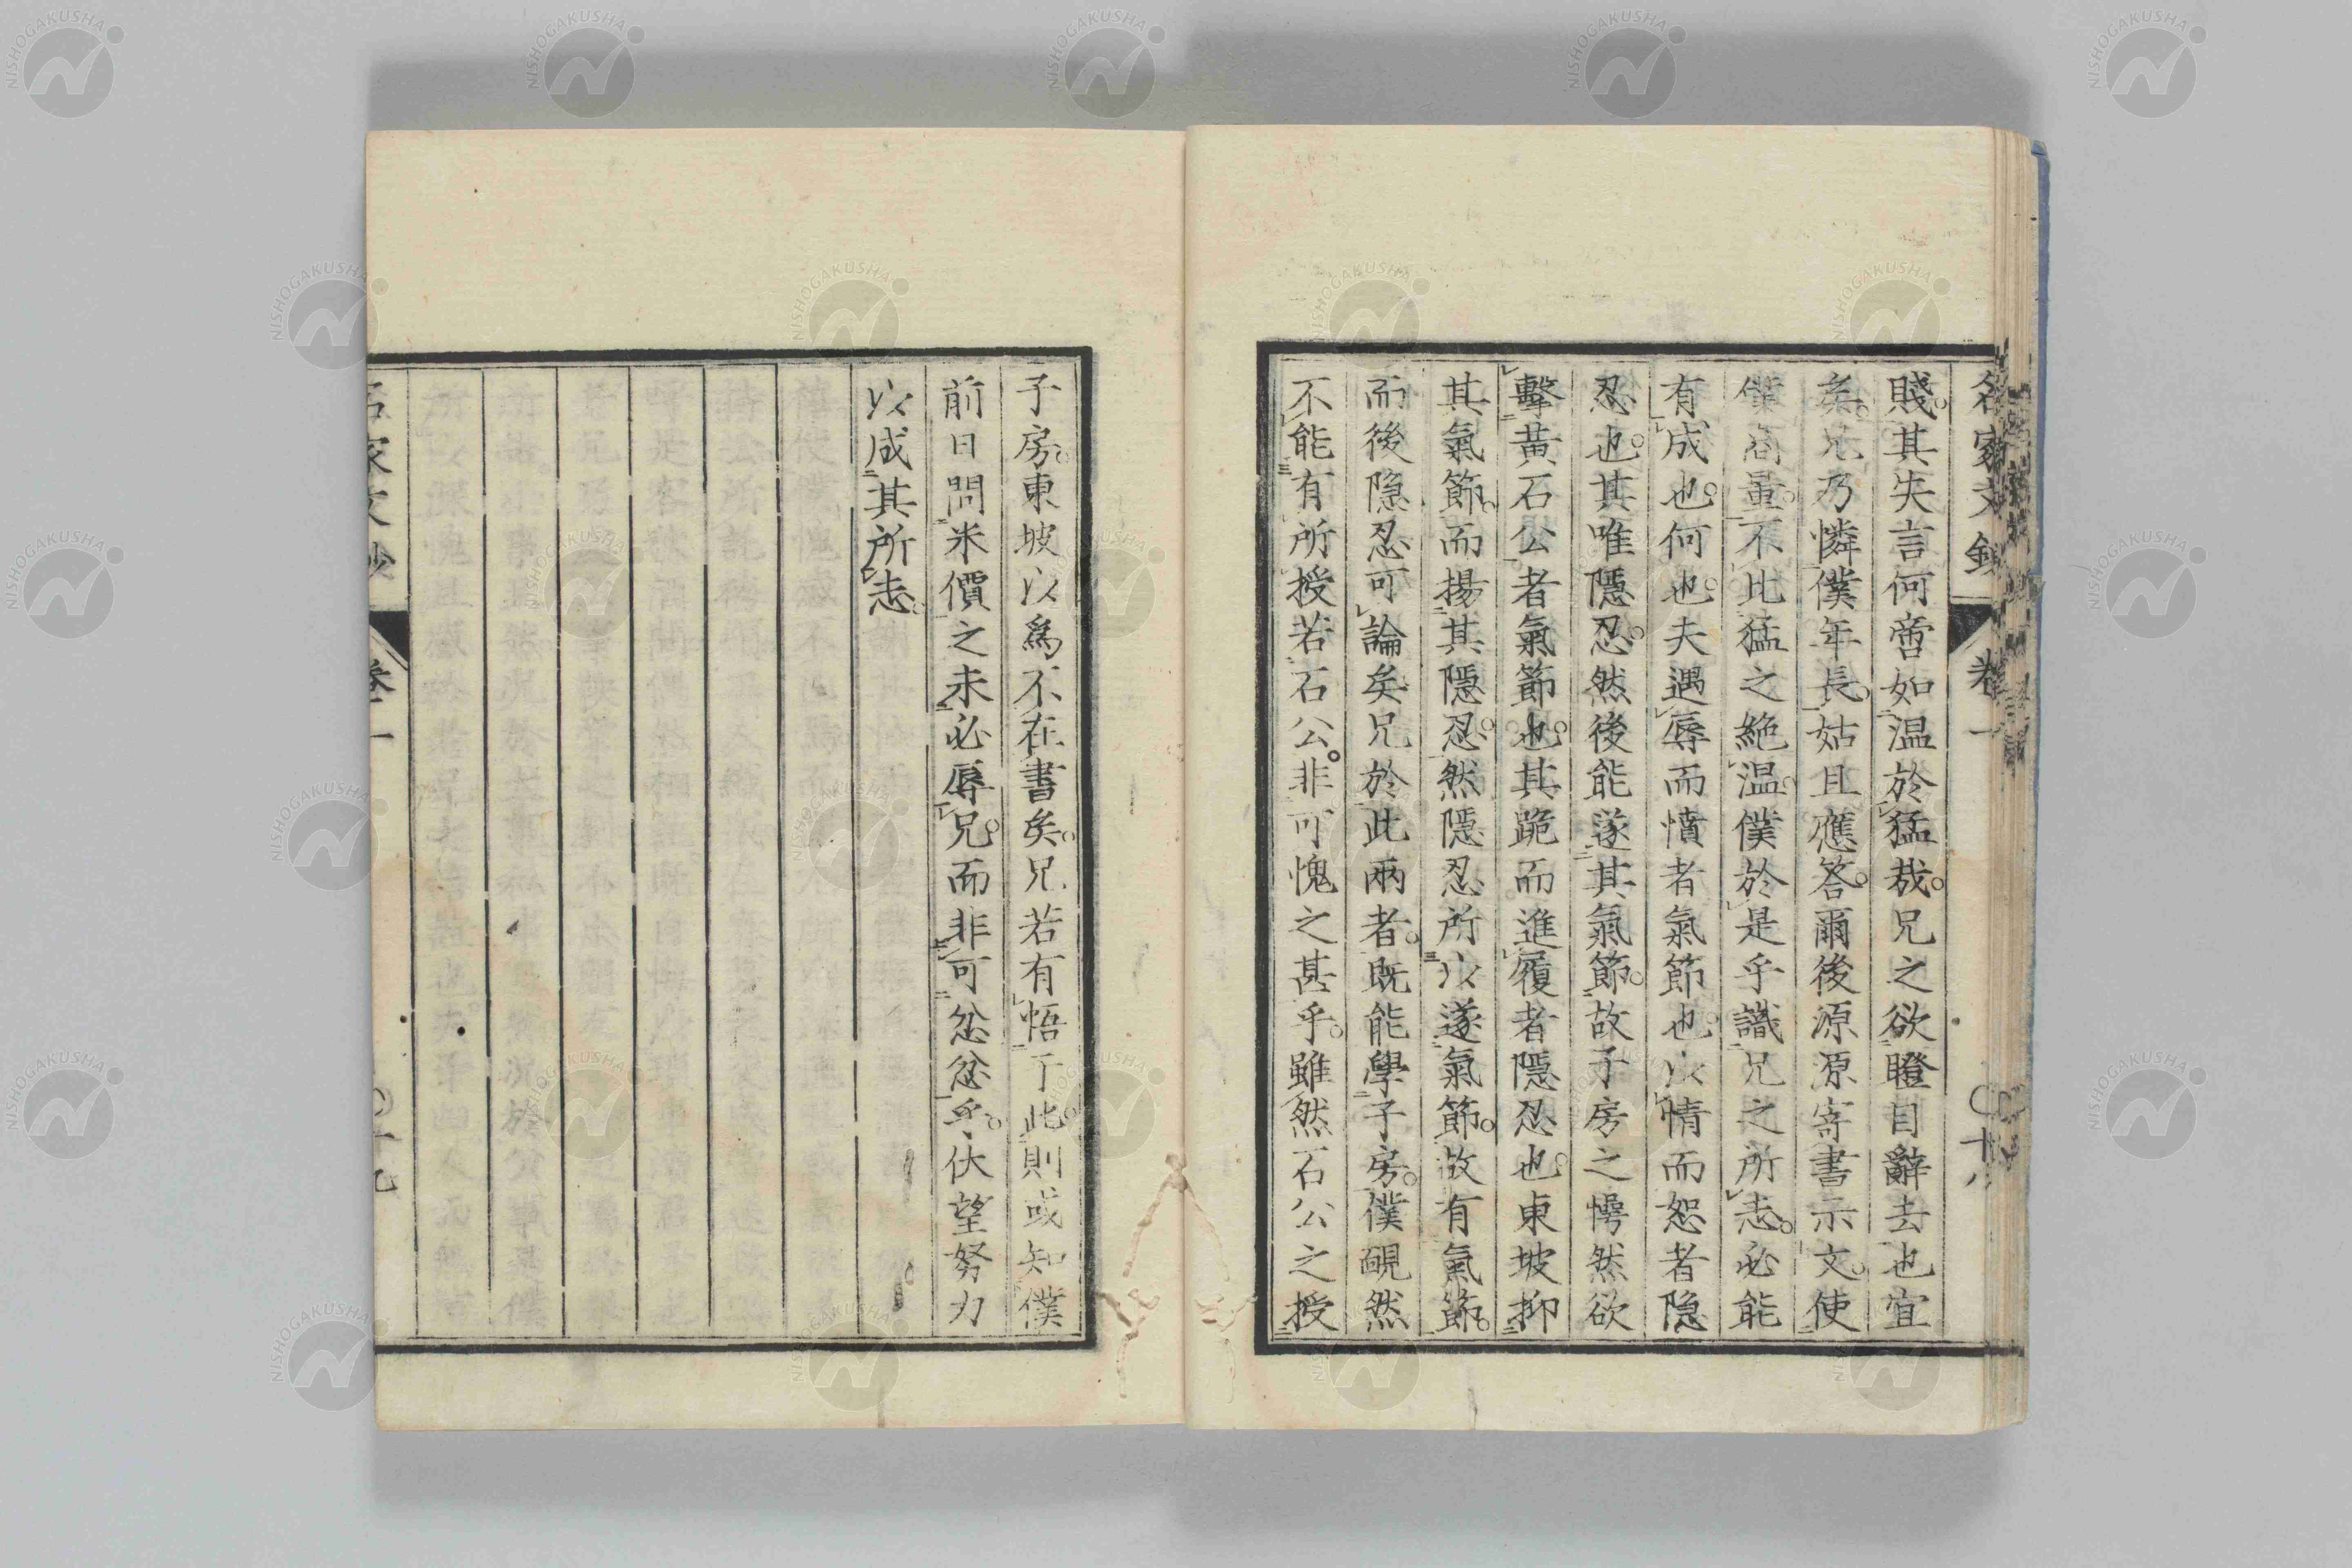 名家文鈔 卷一 〇十八
賤。其失言何啻如温於猛哉。兄之欲瞪目辭去也宜
矣。兄乃憐僕年長。姑且應答。爾後源源寄書示文。使
僕商量。不比猛之絶温。僕於是乎識兄之所志。必能
有成也。何也。夫遇辱而憤者氣節也。以情而恕者隠
忍也。其唯隠忍。然後能遂其氣節。故子房之愕然欲
擊黄石公者氣節也。其跪而進履者隠忍也。東坡抑
其氣節。而揚其隠忍。然隠忍所以遂氣節。故有氣節。
而後隠忍可論矣。兄於此兩者。既能學子房。僕靦然
不能有所授若石公。非可愧之甚乎。雖然石公之授
子房。東坡以爲不在書矣。兄若有悟于此。則或知僕
前日問米價之未必辱兄。而非可忿忿乎。伏望努力
以成其所志。
名家文鈔 卷一 〇十九
NISHOGAKUSHA